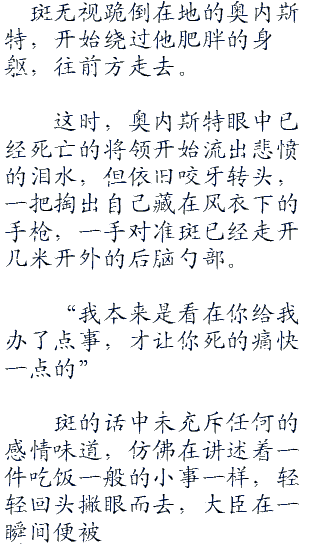 斑无视跪倒在地的奥内斯
特，开始绕过他肥胖的身
躯，往前方走去。
这时，奥内斯特眼中已
经死亡的将领开始流出悲愤
的泪水，但依旧咬牙转头，
一把掏出自己藏在风衣下的
手枪，一手对准斑已经走开
几米开外的后脑勺部。
“我本来是看在你给我
办了点事，才让你死的痛快
一点的”
斑的话中未充斥任何的
感情味道，仿佛在讲述着一
件吃饭一般的小事一样，轻
轻回头撇眼而去，大臣在一
瞬间便被